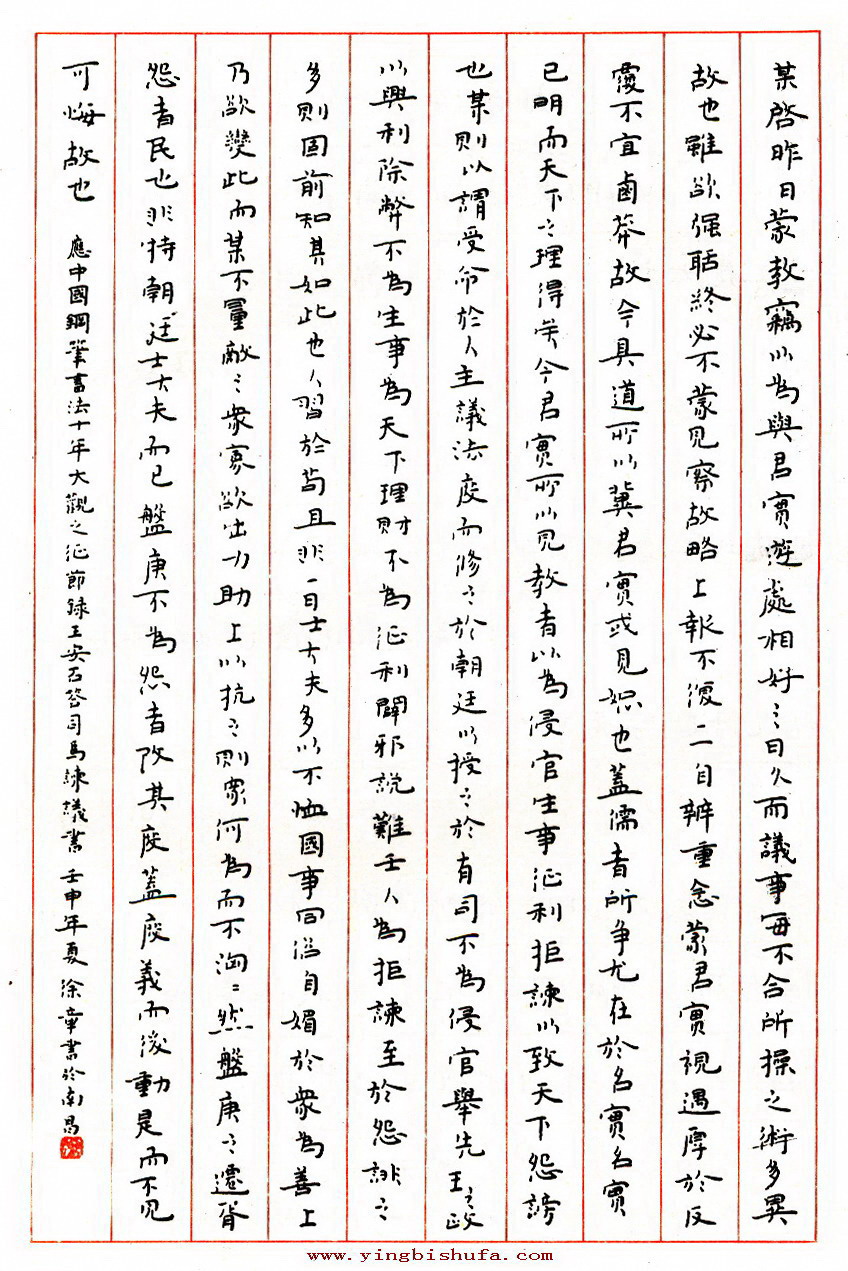 某啓昨日蒙教竊以為與君實遊處相好之日久而議事每不合所操之術多異
故也雖欲强聒終必不蒙見察故略上報不復一一自辨重念蒙君實視遇厚於反
覆不宜鹵莽故今具道所以冀君實或見恕也蓋儒者所争尤在於名實名實
已明而天下之理得矣今君實所以見教者以為侵官生事征利拒諫以致天下怨謗
也某則以謂受命於人主議法度而修之於朝廷以授之於有司不為侵官舉先王之政
以興利除弊不為生事為天下理財不為征利闢邪說難壬人不為拒諫至於怨誹之
多則固前知其如此也人習於苟且非一日士大夫多以不恤國事同俗自媚於衆為善上
乃欲變此而某不量敵之衆寡欲出力助上以抗之則衆何為而不洶洶然盤庚之遷胥
怨者民也非特朝廷士大夫而已盤庚不為怨者改其度蓋度義而後動是而不見
可悔故也 應中國鋼筆書法十年大觀之征節録王安石答司馬諫議書 壬申年夏 徐章書於南昌
www.yingbishufa.com